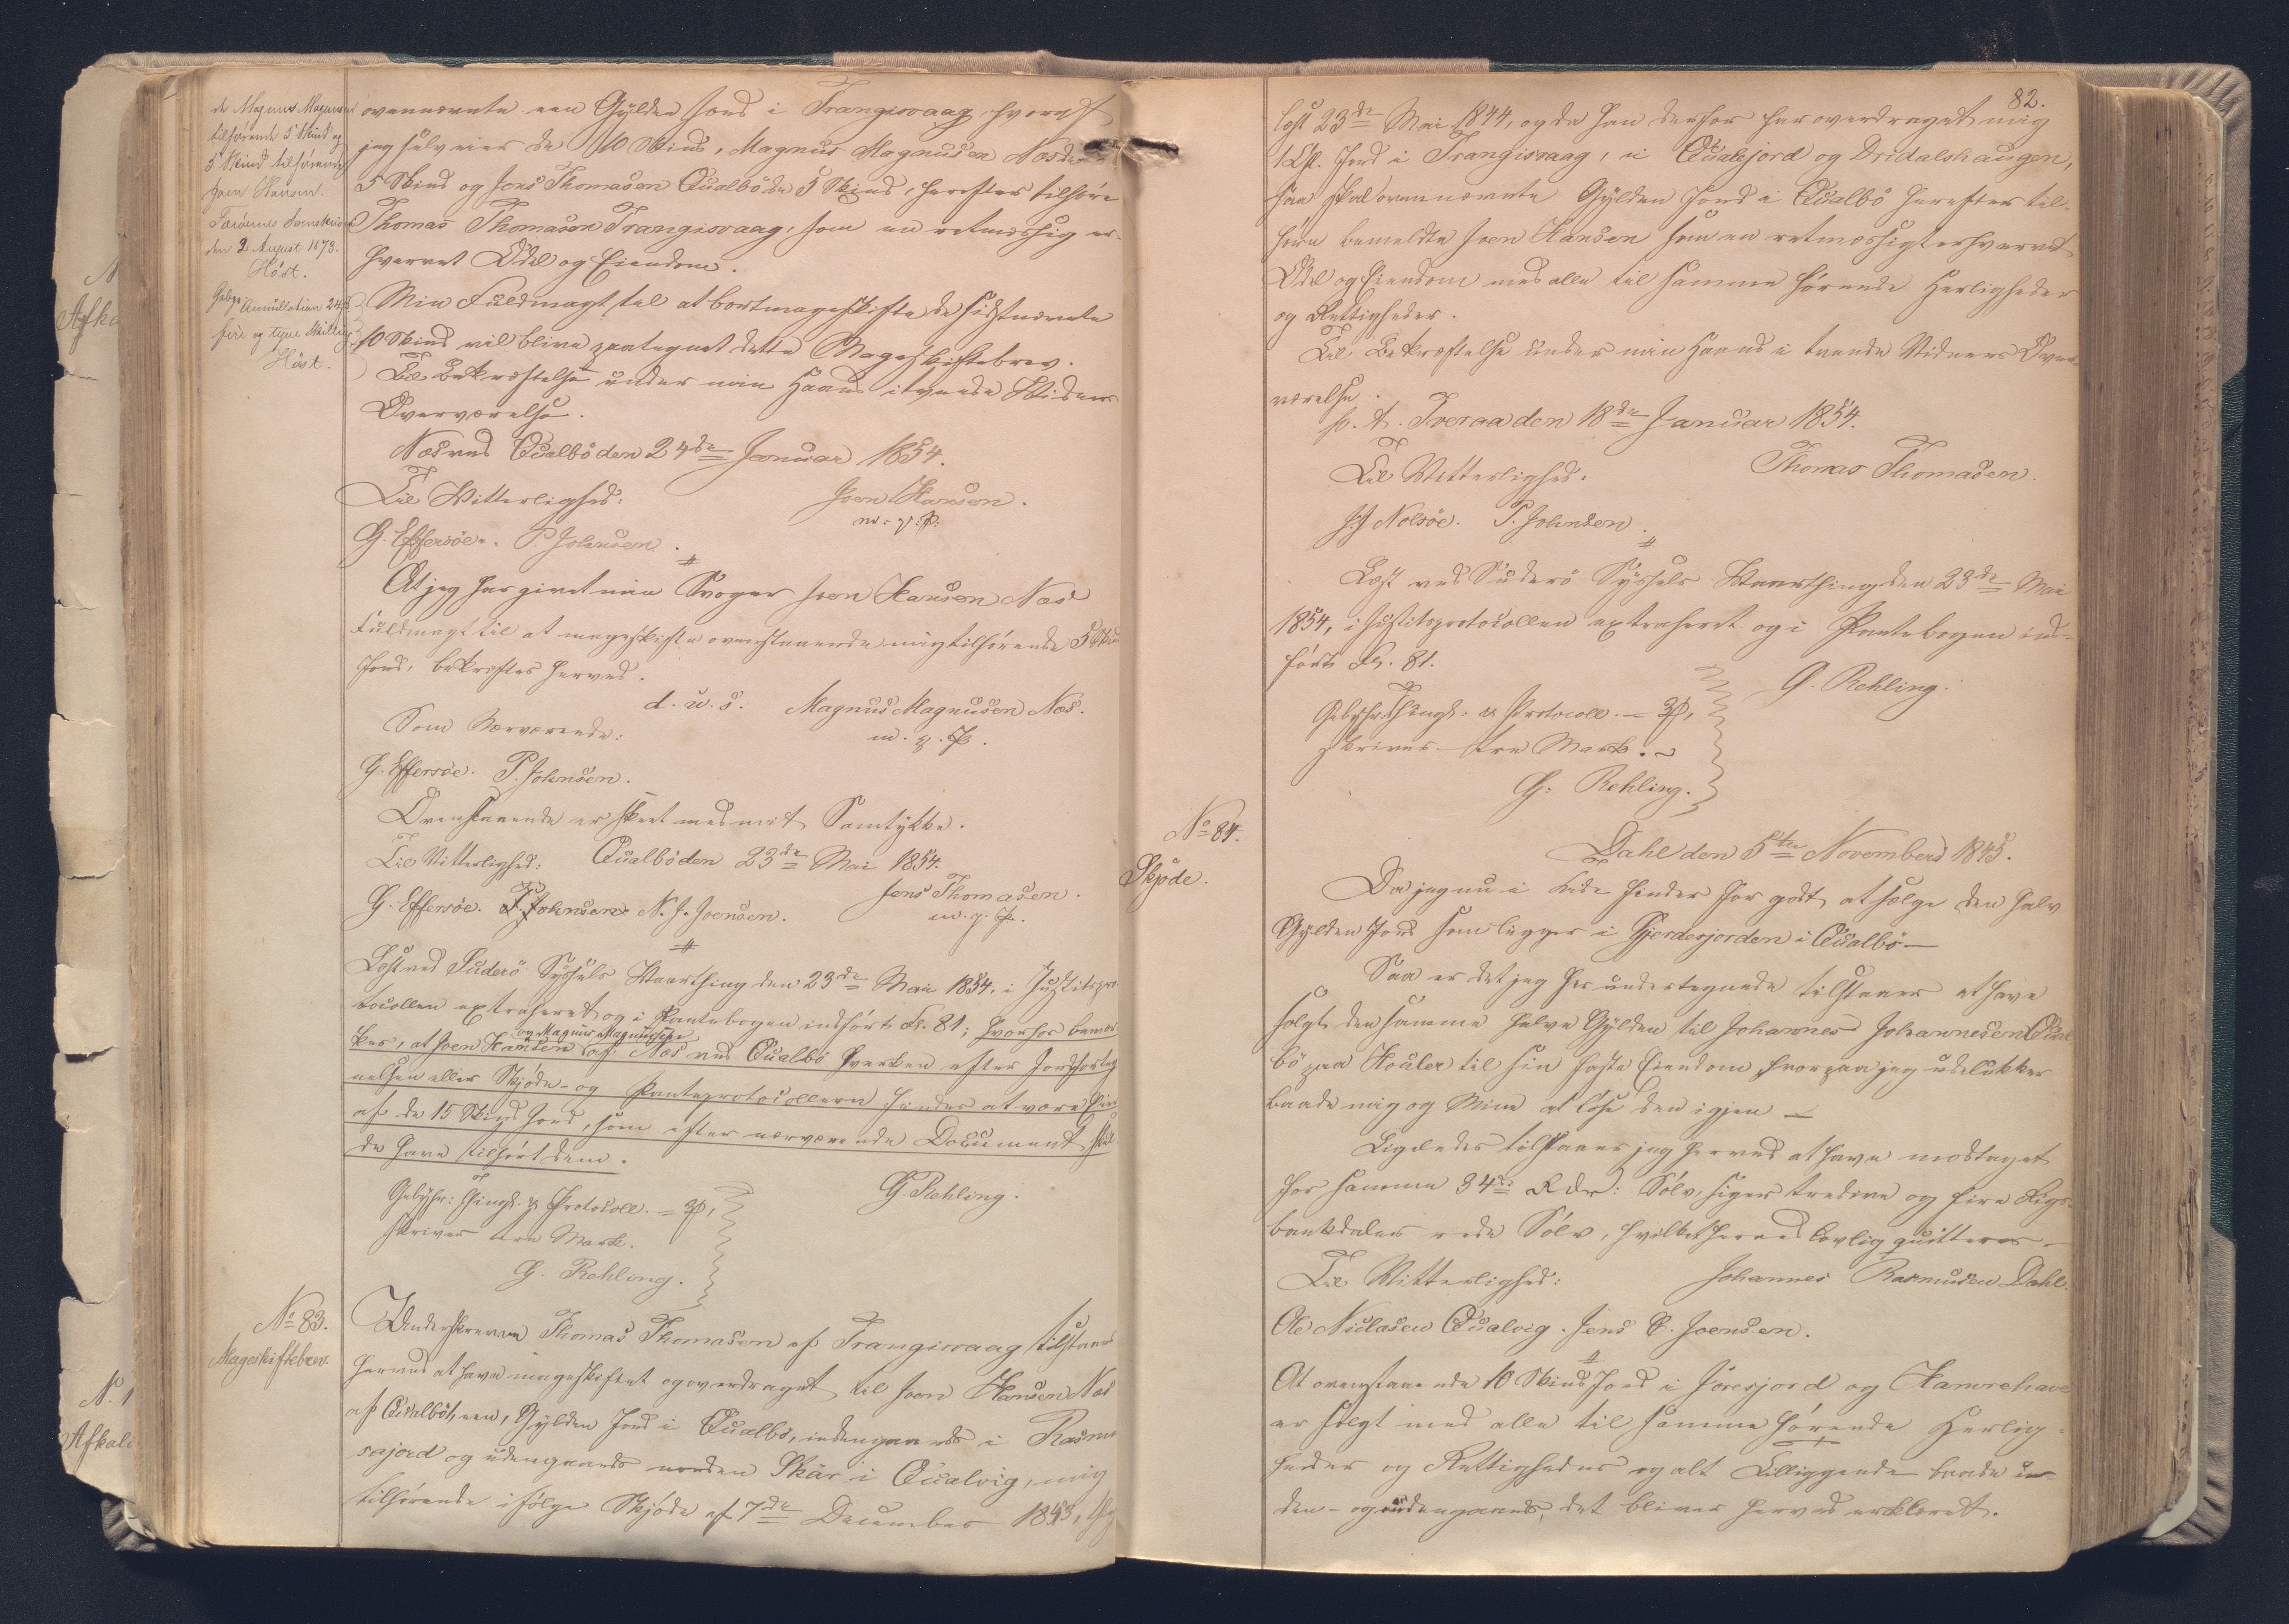 de Magnus Magnusen
tilhørende 5 Skind og
5 Skind tilhørende
Joen Hansen.
Færøernes Sorenskriveri
den 2 August 1873.
Höst.
Gebyr Annullation 24 ß
fire og tyve Skilling
Höst.
ovennævnte een Gylden Jord i Trangisvaag, hvoraf
jeg selv eier de 10 Skind, Magnus Magnusen Næs de
5 Skind og Jens Thomasen Qualbö de 5 Skind, herefter tilhöre
Thomas Thomasen Trangisvaag, som en retmæssig er-
hvervet Odel og Eiendom.
Min Fuldmagt til at bortmageskifte de sidstnævnte
10 Skind vil blive paategnet dette Mageskiftebrev.
Til Bekræftelse under min Haand i tvende Vidners
Overværelse.
Næs ved Qualbö den 24de Januar 1854.
Til Vitterlighed: Joen Hansen.
m. p. P.
G. Effersöe. P. Johnsen.
At jeg har givet min Svoger Joen Hansen Næs
Fuldmagt til at mageskifte ovenstaaende mig tilhörende 5 Skind
Jord, bekræftes herved.
d. u. s. Magnus Magnusen Næs.
Som Nærværende: m. p. P.
G. Effersöe. P. Johnsen.
Ovenstaaende er skeet med mit Samtykke.
Til Vitterlighed: Qualbö den 23de Mai 1854.
G. Effersöe. P. Johnsen. N. J. Joensen. Jens Thomasen.
m. p. P.
Læst ved Suderö Syssels Vaarthing den 23de Mai 1854, i Justitspro-
tocollen extraheret og i Pantebogen indfört Fol. 81; hvorhos bemær-
kes, at Joen Hansen og Magnus Magnussen af Næs ved Qualbö hverken efter Jordforteg-
nelsen eller Skjöde- og Panteprotocollern findes at være Eier
af de 15 Skind Jord, som efter nærværende Document skul-
de have tilhört dem.
G. Rehling.
Gebyhr: Thingl. & Protocoll. = 3 ₻,
skriver tre Mark.
G. Rehling.
No 83.
Mageskiftebrev.
Underskrevne Thomas Thomasen af Trangisvaag tilstaaer
herved at have mageskiftet og overdraget til Joen Hansen Næs
af Qualbö, een, Gylden Jord i Qualbö, indengaards i Rasmu-
sajord og udengaards norden Skär i Qualvig, mig
tilhörende ifölge Skjöde af 7de December 1853,
82.
læst 23de Mai 1844, og da han derfor har overdraget mig
1 Gl. Jord i Trangisvaag, i Qvalejord og Dridalshaugen,
saa skal ovennævnte Gylden Jord i Qualbö herefter til-
höre bemeldte Joen Hansen som en retmæssigt erhvervet
Odel og Eiendom med alle til samme hörende Herligheder
og Rettigheder.
Til Bekræftelse under min Haand i tvende Vidners Over-
værelse.
p. t. Tveraa den 18de Januar 1854.
Til Vitterlighed. Thomas Thomasen.
J. J. Nolsöe. P. Johnsen.
Læst ved Suderö Syssels Vaarthing den 23de Mai
1854, i Justitsprotocollen extraheret og i Pantebogen ind-
fört Fol. 81.
G. Rehling.
Gebyhr. Thingl. & Protocoll. = 3 ₻,
skriver tre Mark.
G. Rehling.
No 84.
Skjöde.
Dahl den 5te November 1845.
Da jeg nu i Tide finder for godt at sælge den halv
Gylden Jord som ligger i Gjerdesjorden i Qualbö —
Saa er det jeg her undertegnede tilstaaer at have
solgt den samme halve Gylden til Johannes Johannesen Qual-
bö paa Houler til sin faste Eiendom, hvorpaa jeg udelukker
baade mig og Mine at löse den igjen —
Ligeledes tilstaaer jeg herved at have modtaget
for samme 34 Rdr: Sölv, siger tredive og fire Rigs-
bankdaler rede Sölv, hvilket herved lovlig quitteres —
Til Vitterlighed: Johannes Rasmusen Dahl.
Ole Niclasen Qualvig. Jens C. Joensen.
At ovenstaaende 10 Skind Jord i Jöresjord og Hamrehave
er solgt med alle til samme hörende Herlig-
heder og Rettigheder og alt Tilliggende baade in-
den- og udengaards, det bliver herved erklæret.